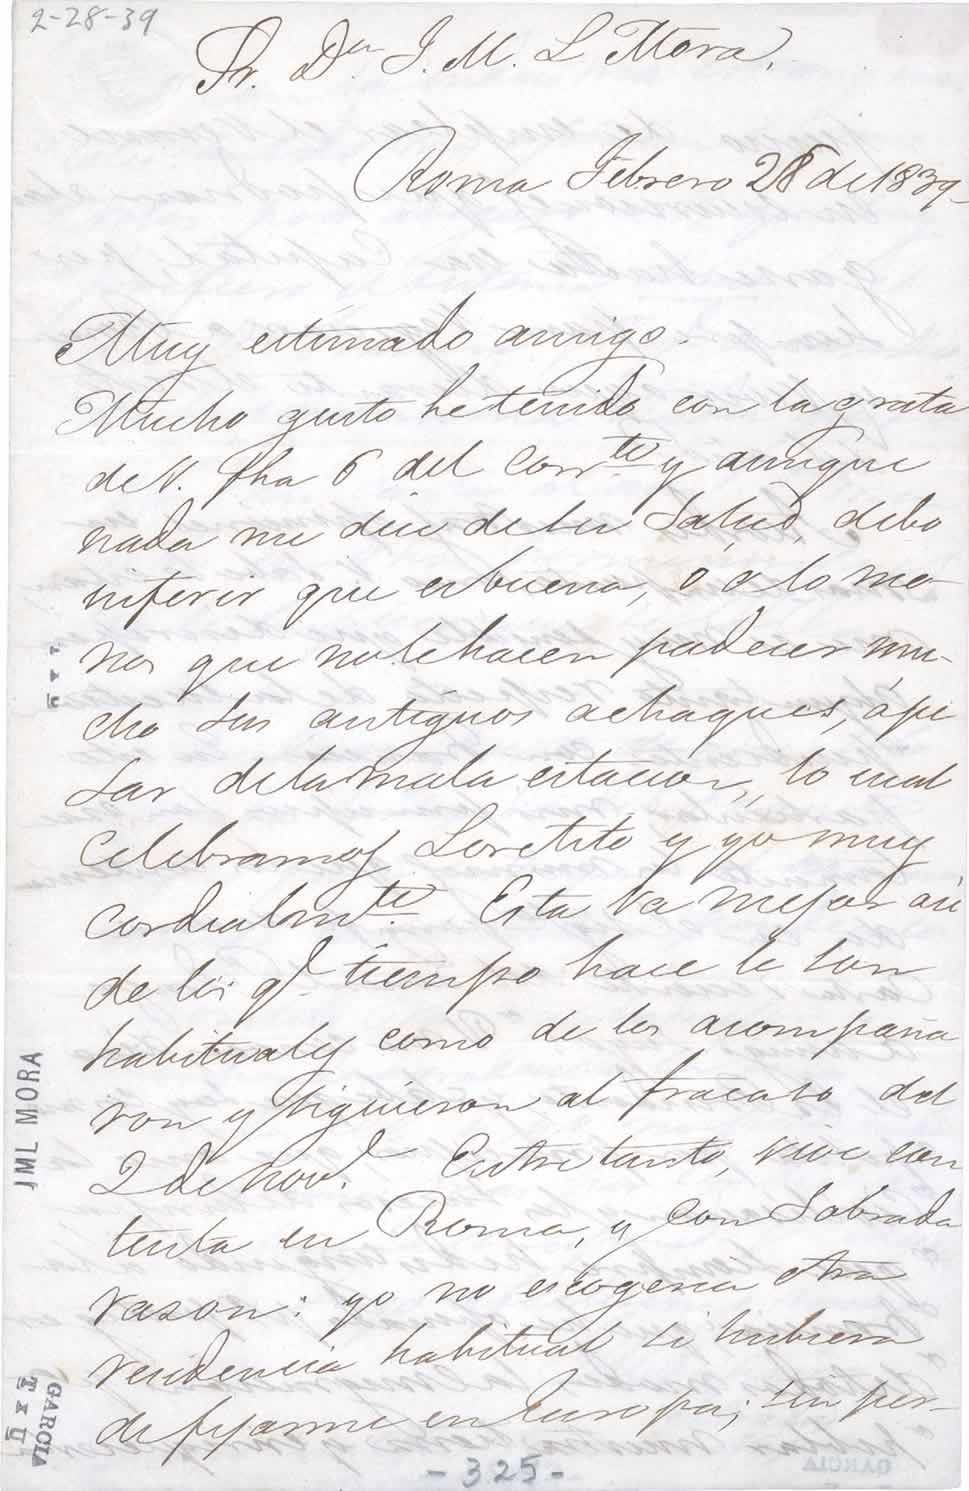 2-28-39
Sr. Dn J. M. L Mora.
Roma Febrero 28 de 1839-
Muy estimado amigo.
Mucho gusto he tenido con la grata
de V. fha 6 del corrte y aunque
nada me dice de su salud, debo
inferir que es buena, ó a lo me-
nos que no le hacen padecer mu-
cho sus antiguos achaques, ápe
sar de la mala estacion, lo cual
celebramos Loretito y yo muy
cordialmte. Esta va mejor asi
de los q. tiempo hace le son
habituales como de los acompaña
ron y siguieron al fracaso del
2 de Nove. Entre tanto, vive con
tenta en Roma, y con sobrada
rason: yo no escogeria otra
residencia habitual si hubiera
de fijarme en Europa; sin per-
- 325 -
JML MORA
GARCIA
T x U
T x U
GARCIA